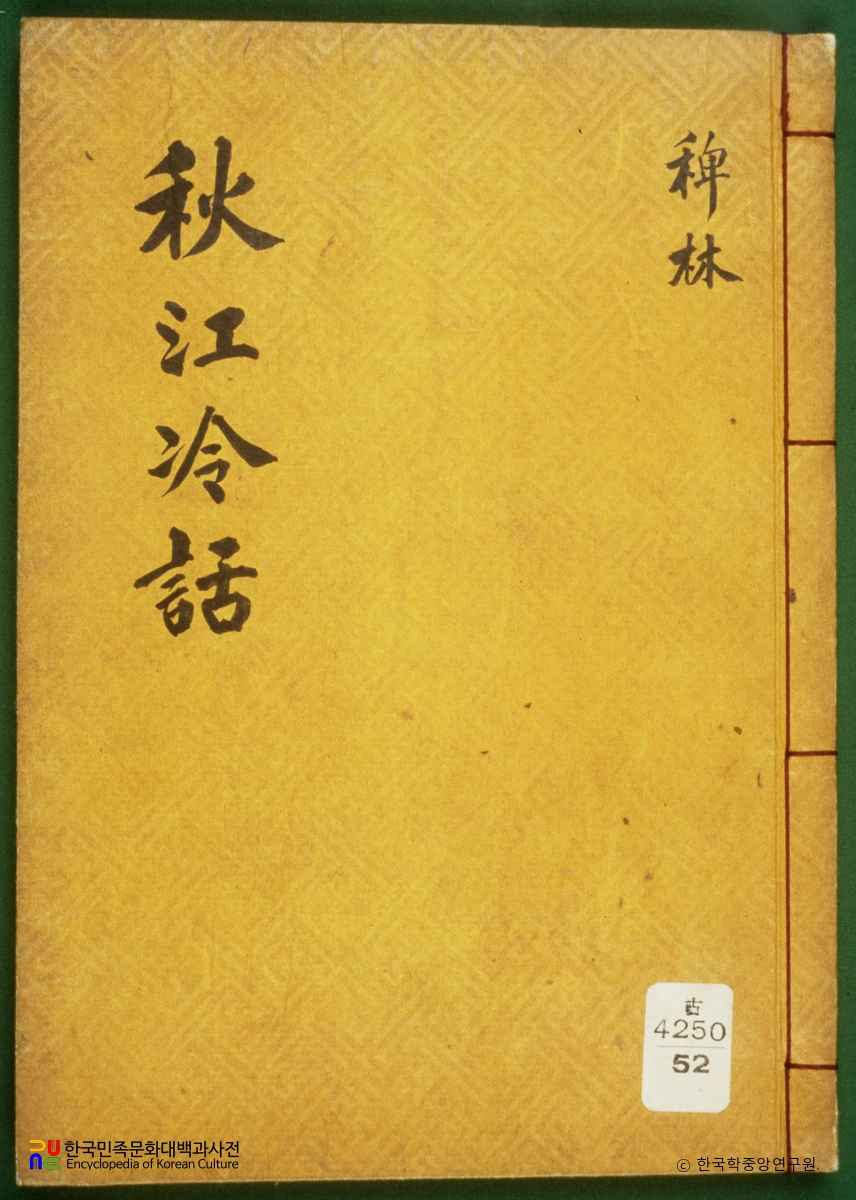 稗林
秋江冷話
古
4250
52
한국민족문화대백과사전
Encyclopedia of Korean Culture
© 한국학중앙연구원.